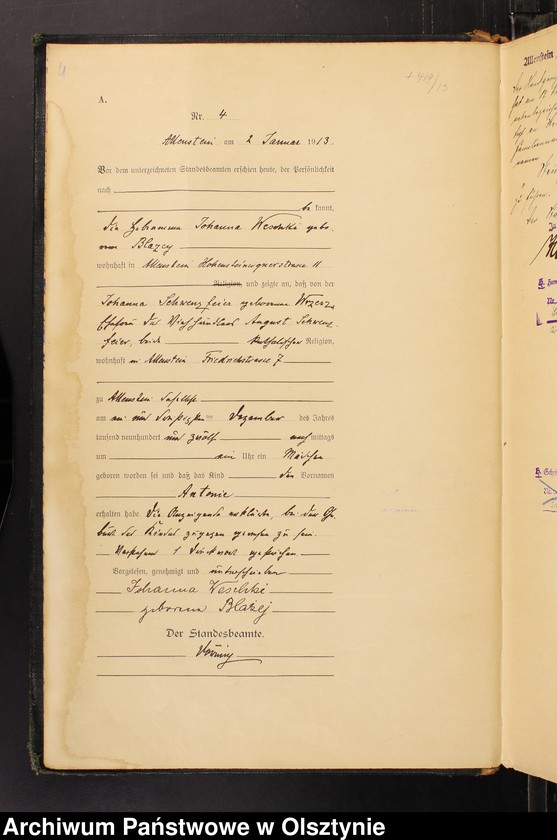 4
+ 419/13
A.
Nr. 4
Allenstein am 2 Januar 1913.
Vor dem unterzeichneten Standesbeamten erschien heute, der Persönlichkeit
nach
be kannt,
die Hebamme Johanna Weschki gebo-
rene Blazej
wohnhaft in Allenstein Hohensteinquerstrasse 11
Religion, und zeigte an, daß von der
Johanna Schwenzfeier geborenen
Ehefrau des Viehhändlers August Schwenz-
feier, beide katholischer Religion,
wohnhaft in Allenstein Friedrichstrasse 7
zu Allenstein daselbst
am ein und dreißigsten Dezember des Jahres
tausend neunhundert und zwölf nach mittags
um ein Uhr ein Mädchen
geboren worden sei und daß das Kind den Vornamen
Antonie
erhalten habe. Die Anzeigende erklärte, bei der Ge
burt des Kindes zugegen gewesen zu sein.
Vorstehend 1 Druckwort gestrichen.
Vorgelesen, genehmigt und unterschrieben
Johanna Weschki
geborene Blazej
Der Standesbeamte.
Allenstein
Archiwum Państwowe w Olsztynie